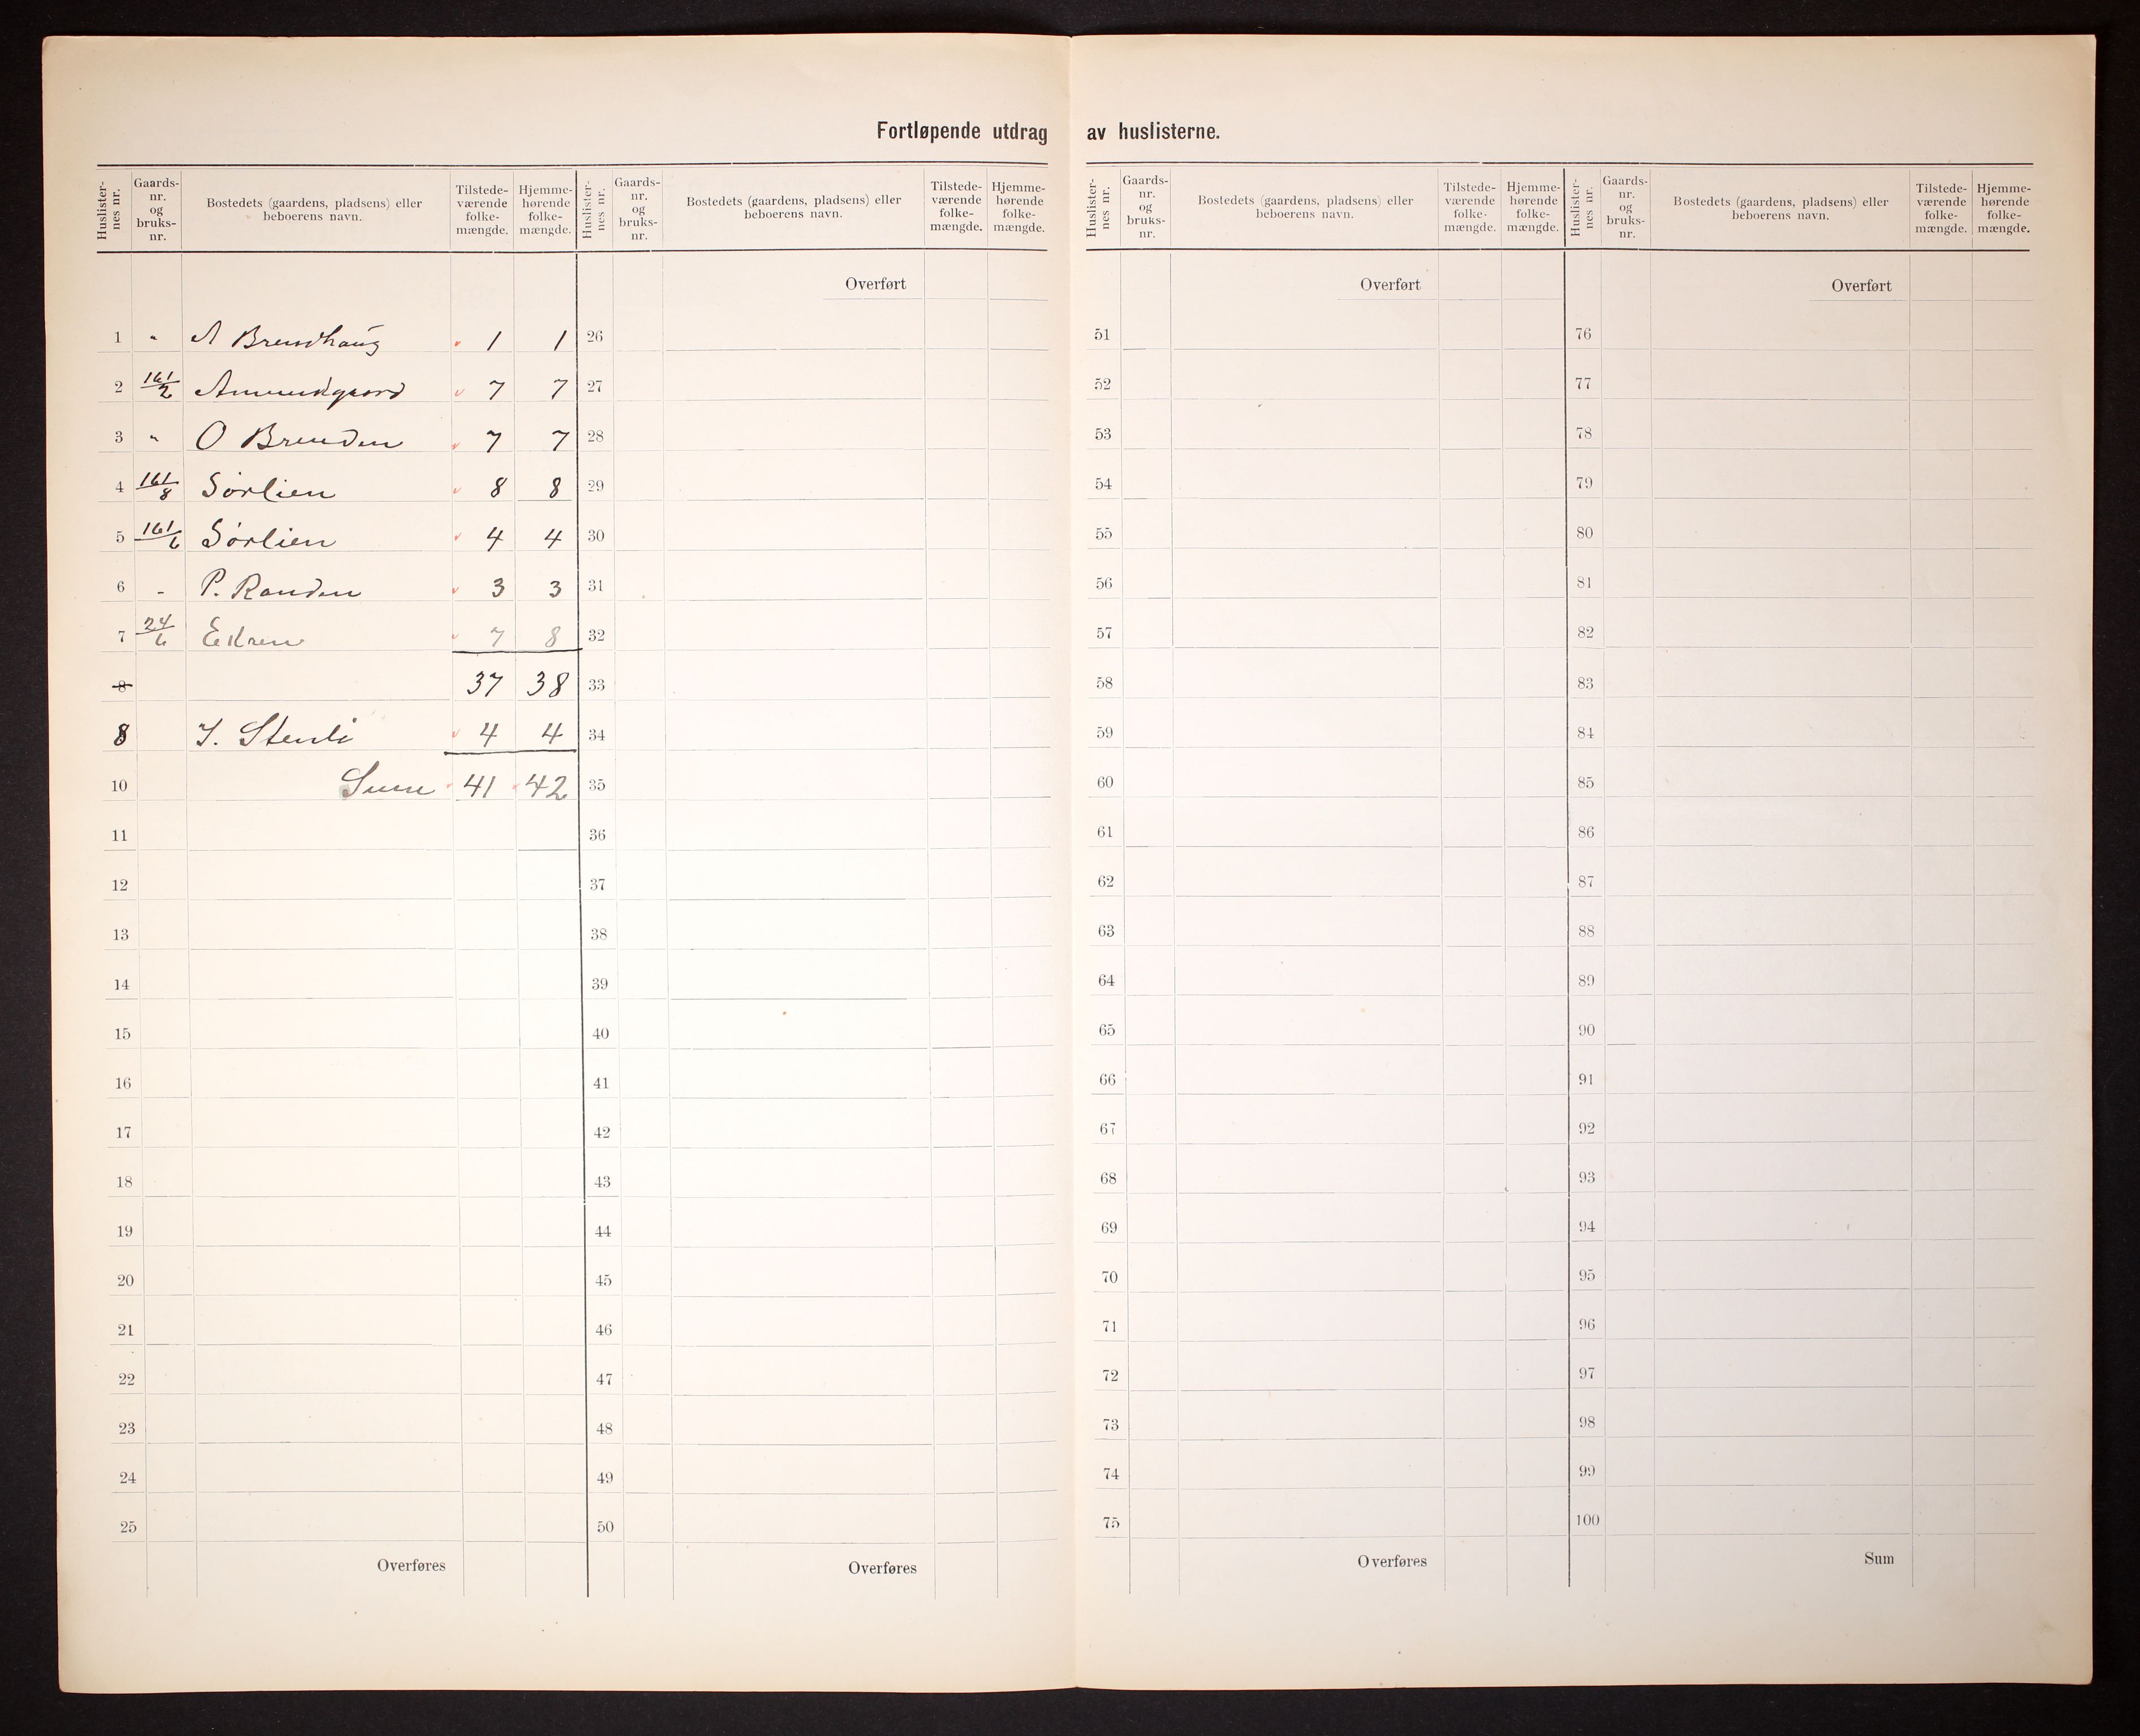 Fortløpende utdrag av huslisterne.
Huslisternes nr. Gaards-nr. og bruks-nr. Bostedets (gaardens, pladsens) eller beboerens navn. Tilstede-værende folke-mængde. Hjemme-hørende folke-mængde.
1 " A Brendhaug 1 1
2 161/2 Amundgaard 7 7
3 " O Brenden 7 7
4 161/8 Sørlien 8 8
5 161/6 Sørlien 4 4
6 - P. Randen 3 3
7 24/6 Ekren 7 8
8 37 38
8 J. Stenli 4 4
10 Sum 41 42
11
12
13
14
15
16
17
18
19
20
21
22
23
24
25
Overføres
Huslisternes nr. Gaards-nr. og bruks-nr. Bostedets (gaardens, pladsens) eller beboerens navn. Tilstede-værende folke-mængde. Hjemme-hørende folke-mængde.
Overført
26
27
28
29
30
31
32
33
34
35
36
37
38
39
40
41
42
43
44
45
46
47
48
49
50
Overføres
Huslisternes nr. Gaards-nr. og bruks-nr. Bostedets (gaardens, pladsens) eller beboerens navn. Tilstede-værende folke-mængde. Hjemme-hørende folke-mængde.
Overført
51
52
53
54
55
56
57
58
59
60
61
62
63
64
65
66
67
68
69
70
71
72
73
74
75
Overføres
Huslisternes nr. Gaards-nr. og bruks-nr. Bostedets (gaardens, pladsens) eller beboerens navn. Tilstede-værende folke-mængde. Hjemme-hørende folke-mængde.
Overført
76
77
78
79
80
81
82
83
84
85
86
87
88
89
90
91
92
93
94
95
96
97
98
99
100
Sum